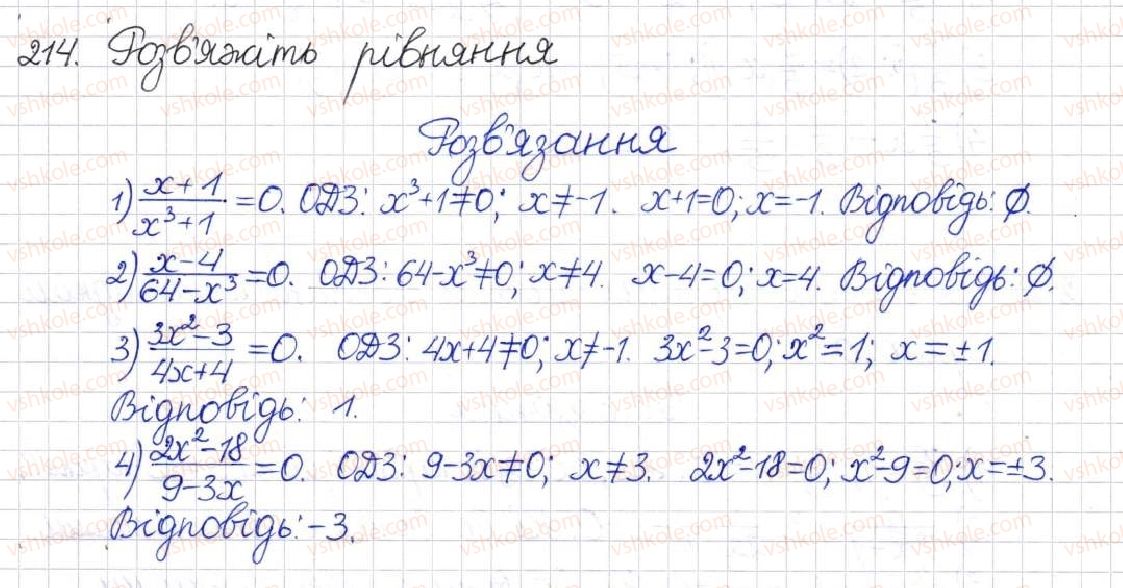 214. Розв'яжіть рівняння
Розв'язання
1) x+1/x³+1 =0. ОДЗ: x³+1≠0; x≠-1. x+1=0; x=-1. Відповідь: ∅.
2) x-4/64-x³ =0. ОДЗ: 64-x³≠0; x≠4. x-4=0; x=4. Відповідь: ∅.
3) 3x²-3/4x+4 =0. ОДЗ: 4x+4≠0; x≠-1. 3x²-3=0; x²=1; x=±1.
Відповідь: 1.
4) 2x²-18/9-3x =0. ОДЗ: 9-3x≠0; x≠3. 2x²-18=0; x²-9=0; x=±3.
Відповідь: -3.